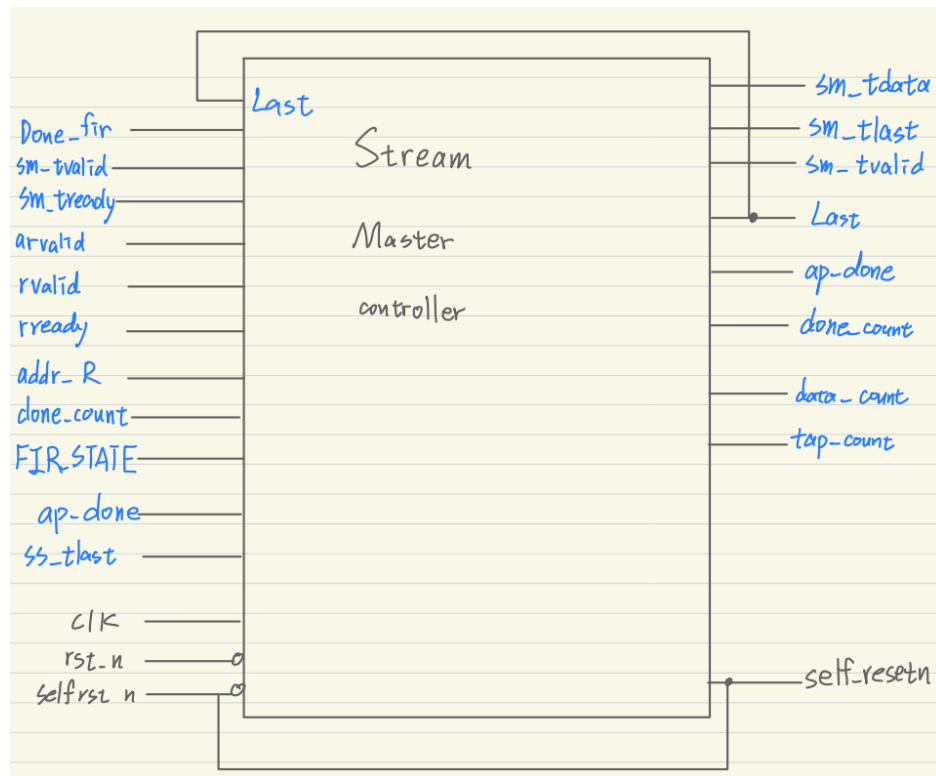 Last
Done_fir
sm_tvalid
sm_tready
arvalid
rvalid
rready
addr_R
done_count
FIR_STATE
ap_done
ss_tlast
clk
rst_n
selfrst_n
Stream
Master
controller
sm_tdata
sm_tlast
sm_tvalid
Last
ap_done
done_count
data_count
tap_count
self_resetn